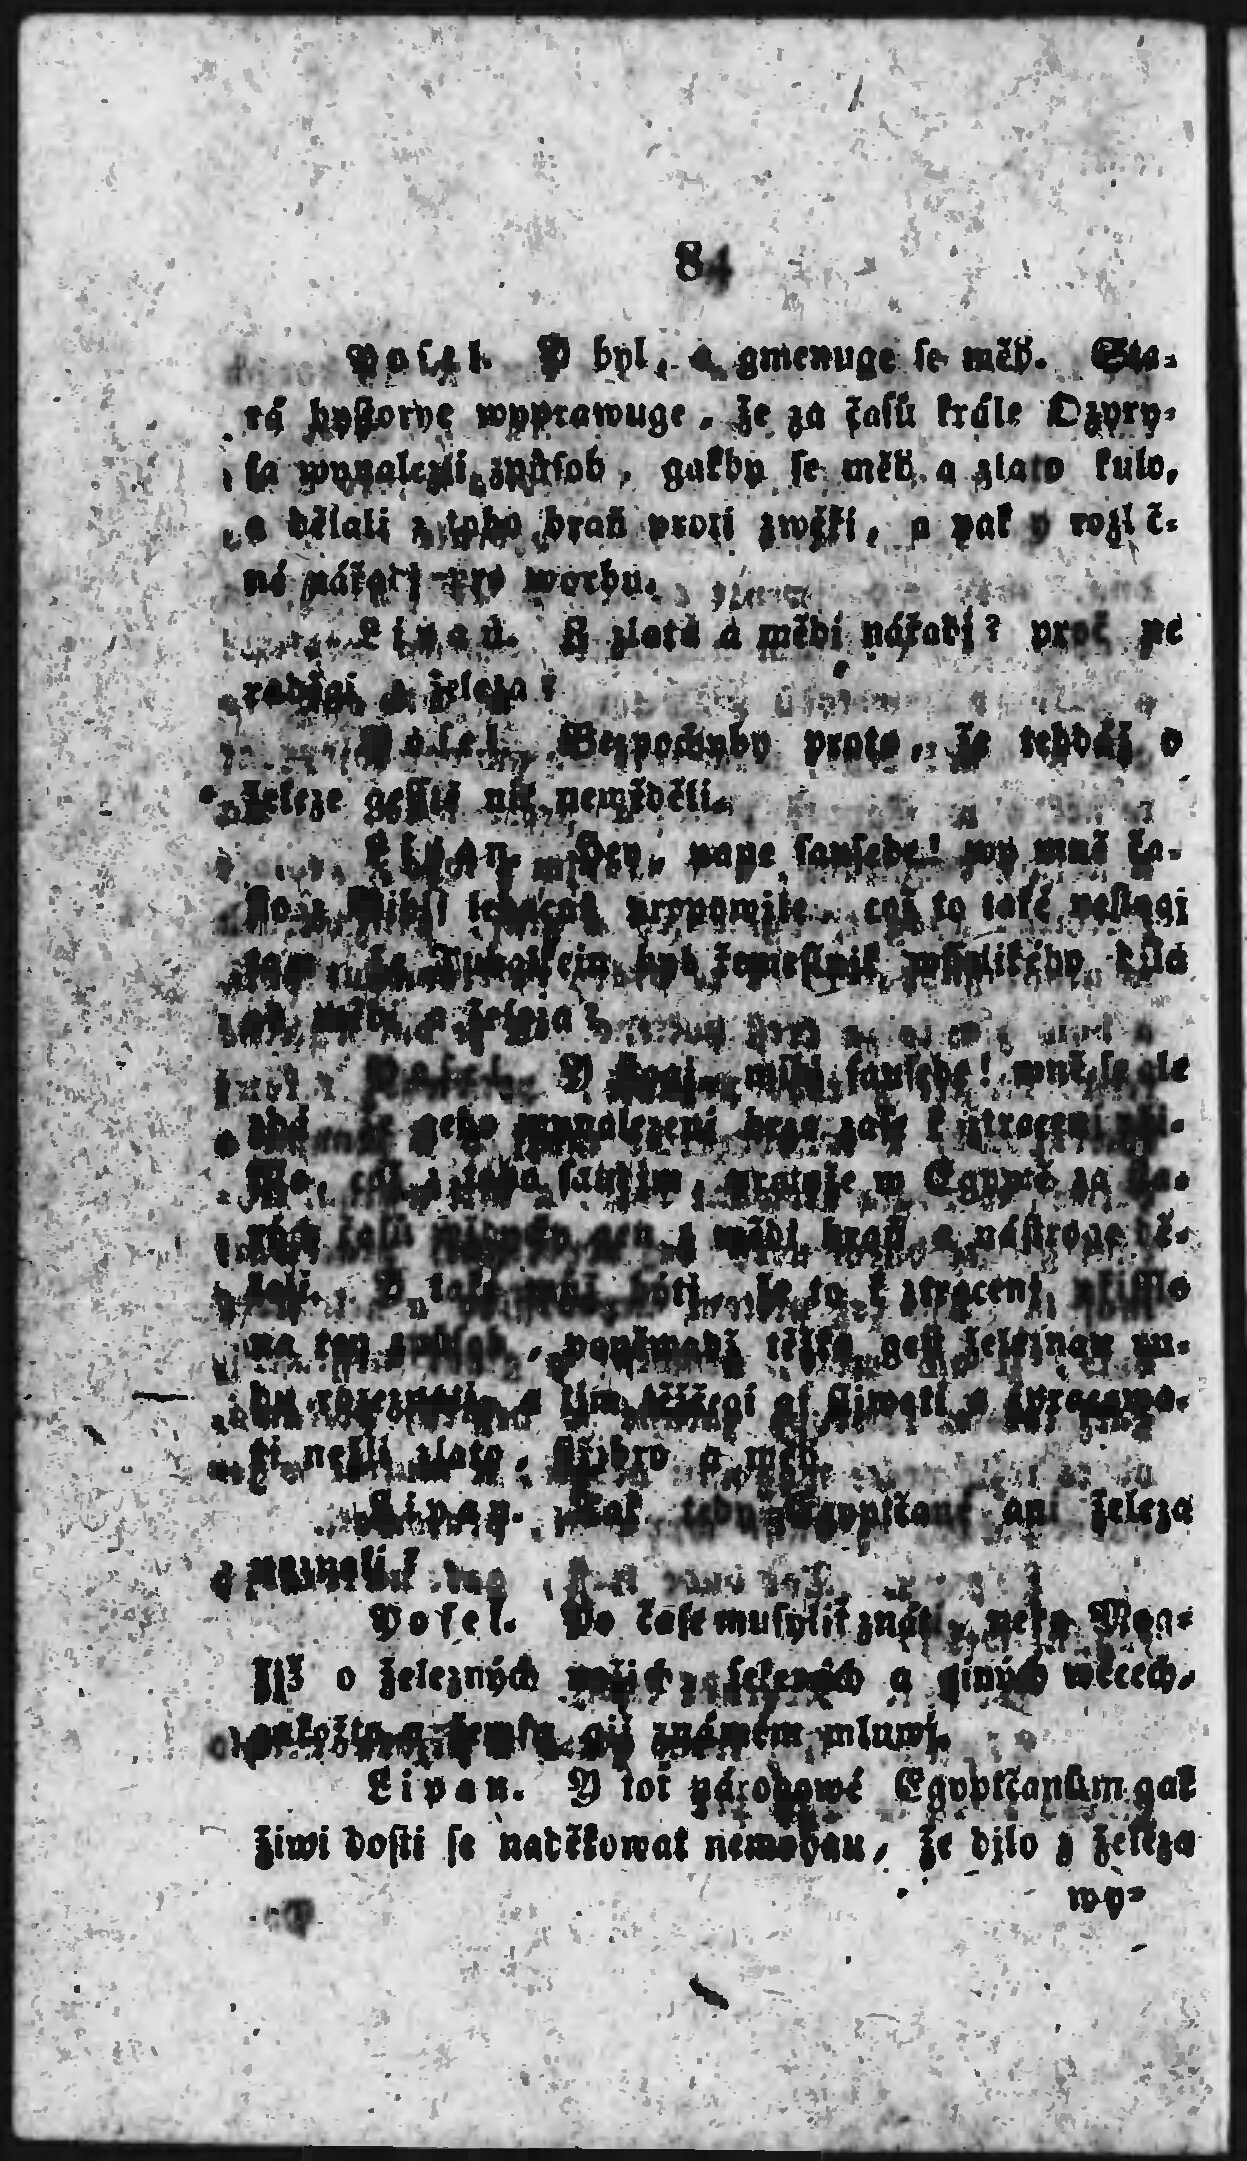 84
Poſel. Y byl, a gmenuge ſe měď. Sta-
rá hyſtorye wyprawuge, že za čaſů krále Ozyry-
ſa wynalezli způſob, gakby ſe měď a zlato kulo,
a dělali z toho braň proti zwěři, a pak y rozl č-
né nářadj pro worbu.
Lipan. Z zlata a mědi nářadí? proč ne
raděgi z železa?
Poſel. Bezpochyby proto, že tehdáž o
železe geſſtě nic newěděli.
Lipan. Hey, pane ſauſede! wy mně ča-
ſto z Biblj připomjte, což to také neſtogi
tam, že Tubalkein byl řemeſlnik wſſelikého djla
od mědi a železa?
Poſel. Y milí ſauſede! mně ſe ale
zdá že geho wynalezení zaſe k ztracení při-
ſſlo, což z toho ſaudjm, protože w Egyptě za ſta-
rých čaſů z mědi braň a náſtroge dě-
lali. Y také že to k ztracení přiſſlo
na ten způſob, poněwadž těžko geſt železnau ru-
du rozeznati, a tjm těžčegi gi a zpracowa-
ti nežli zlato, ſtřjbro a měď.
Lipan. Tak tedy Egyptčané ani železa
neznali?
Poſel. Po čaſe muſyliť znáti, nebo Mog-
žjž o železných nožjch, ſekerách a giných wěcech,
gakožto a giž známém mluwj.
Lipan. Y toť národowé Egyptčanům gak
žiwi doſti ſe naděkowat nemohau, že djlo z železa
wy-